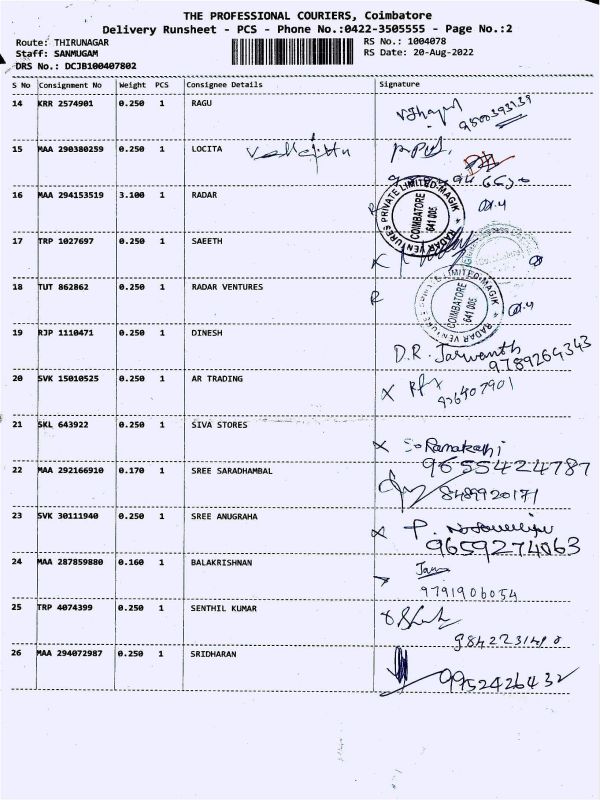 THE PROFESSIONAL COURIERS, Coimbatore
Delivery Runsheet - PCS - Phone No.:0422-3505555 - Page No.:2
Route: THIRUNAGAR RS No.: 1004078
Staff: SANMUGAM RS Date: 20-Aug-2022
DRS No.: DCJB100407802
S No Consignment No Weight PCS Consignee Details Signature
14 KRR 2574901 0.250 1 RAGU
15 MAA 290380259 0.250 1 LOCITA
16 MAA 294153519 3.100 1 RADAR
RADAR VENTURES PRIVATE LIMITED-MAGIK
COIMBATORE
641 005
17 TRP 1027697 0.250 1 SAEETH
18 TUT 862862 0.250 1 RADAR VENTURES
LIMITED-MAGIK
COIMBATORE
641 005
RADAR VENTURES
19 RJP 1110471 0.250 1 DINESH
D.R. Jaswanth
9789264343
20 SVK 15010525 0.250 1 AR TRADING
21 SKL 643922 0.250 1 SIVA STORES
9655424787
22 MAA 292166910 0.170 1 SREE SARADHAMBAL
8489920171
23 SVK 30111940 0.250 1 SREE ANUGRAHA
9659274063
24 MAA 287859880 0.160 1 BALAKRISHNAN
9791906054
25 TRP 4074399 0.250 1 SENTHIL KUMAR
26 MAA 294072987 0.250 1 SRIDHARAN
9952426432